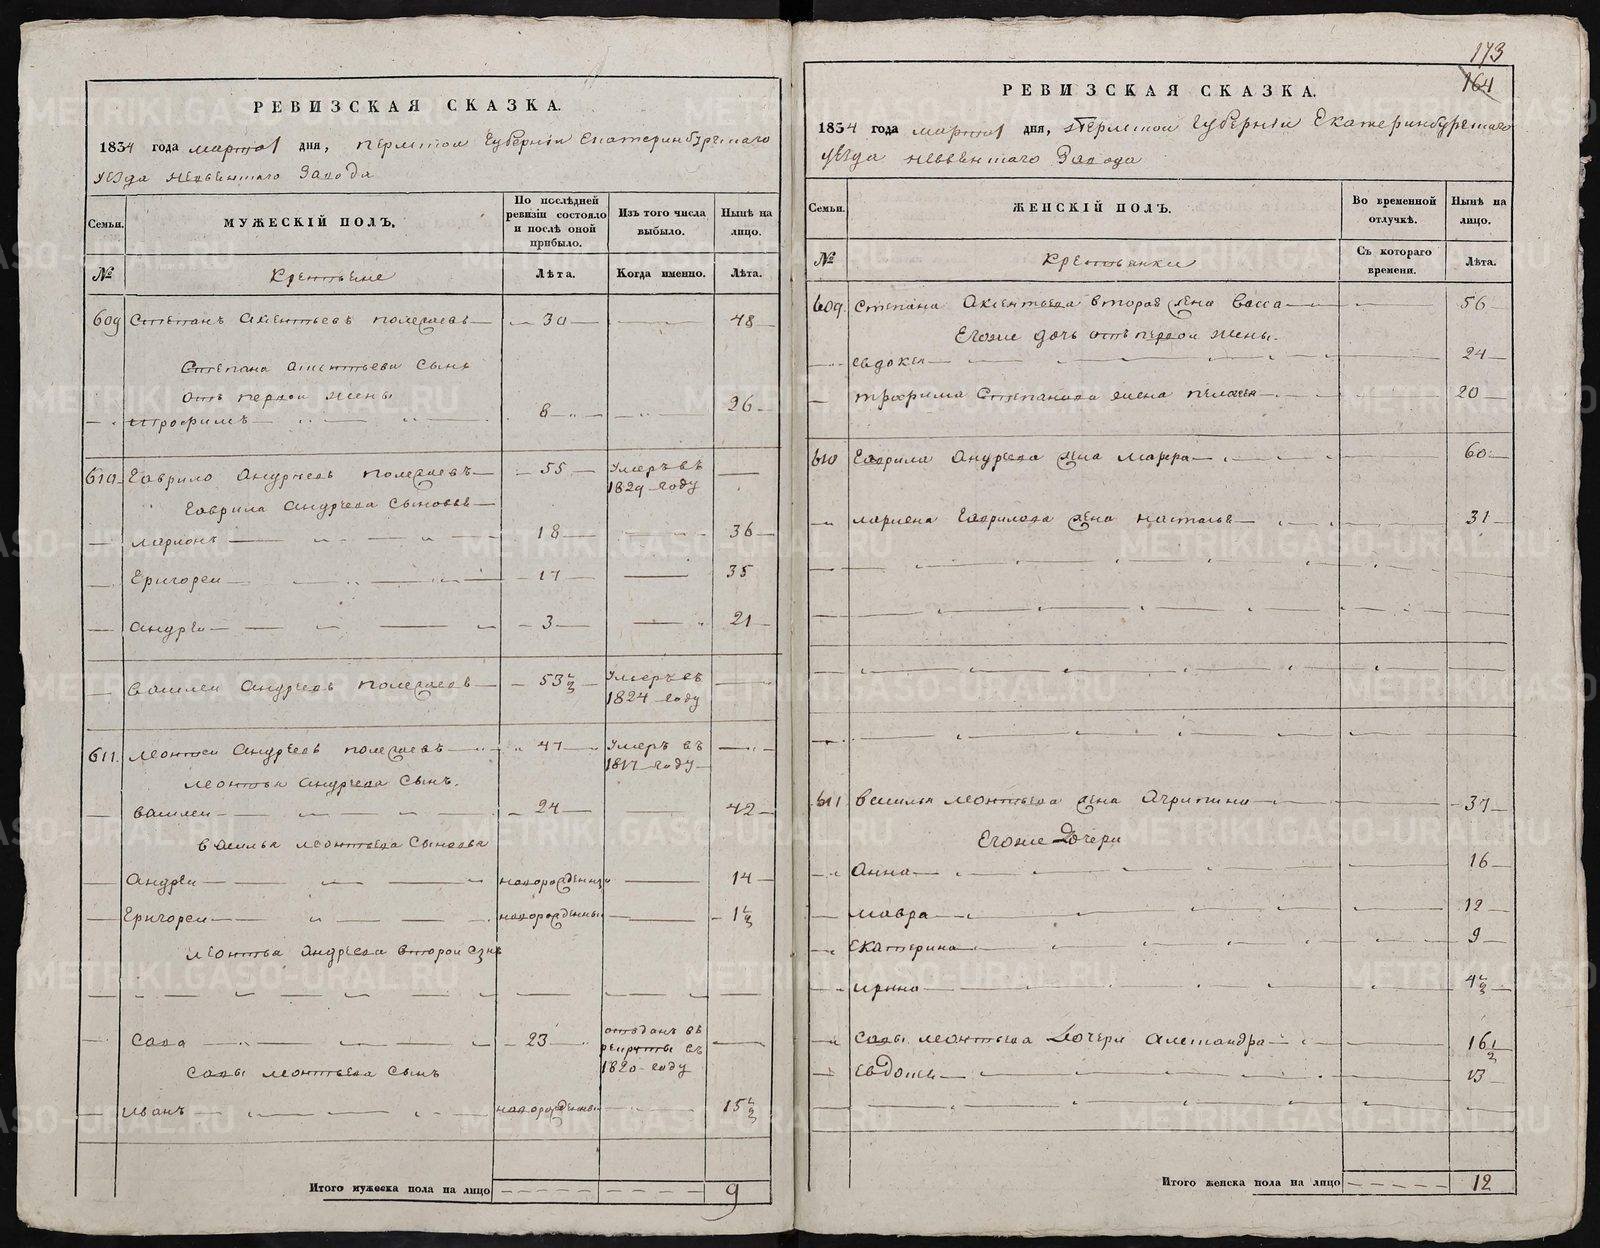 РЕВИЗСКАЯ СКАЗКА.
1834 года марта 1 дня, Пермской Губернии Екатеринбургскаго
уезда Невьянскаго Завода
Семьи.
МУЖЕСКІЙ ПОЛЪ.
По послѣдней ревизіи состояло и послѣ оной прибыло.
Изъ того числа выбыло.
Нынѣ на лицо.
№
Крестьяне
Лѣта.
Когда именно.
Лѣта.
609 Степанъ Акентьевъ 30 48
Степана Акентьева сынъ
отъ первой жены
Трофимъ 8 26
610 Гаврило Андреевъ 55 Умеръ въ 1829 году
Гаврила Андреева сыновья
Ларионъ 18 36
Григореи 17 35
Андреи 3 21
Василеи Андреевъ 53½ Умеръ въ 1824 году
611 Леонтеи Андреевъ 47 Умеръ въ 1817 году
Леонтья Андреева сынъ.
Василеи 24 42
Василья Леонтьева сыновья
Андреи новорожденны 14
Григореи новорожденны 1½
Леонтья Андреева второи сынъ
Сава 23 отъданъ въ рекруты въ 1820 году
Савы Леонтьева сынъ
Иванъ новорожденны 15½
Итого мужеска пола на лицо 9
173
164
РЕВИЗСКАЯ СКАЗКА.
1834 года марта 1 дня, Пермской Губерніи Екатеринбургскаго
уезда Невьянскаго Завода
Семьи.
ЖЕНСКІЙ ПОЛЪ.
Во временной отлучкѣ.
Нынѣ на лицо.
№
Крестьянки
Съ котораго времени.
Лѣта.
609. Степана Акентьева вторая жена Васса 56
Егоже дочь отъ первой жены.
Евдокея 24
Трофима Степанова жена Пелагея 20
610 Гаврила Андреева жена Марфа 60
Лариона Гаврилова жена Настасья 31
611 Василья Леонтьева жена Агрипина 37
Егоже Дочери
Анна 16
Мавра 12
Екатерина 9
Ирина 4½
Савы Леонтьева Дочери Алесандра 16½
Евдокья 13
Итого женска пола на лицо 12
METRIKI.GASO-URAL.RU